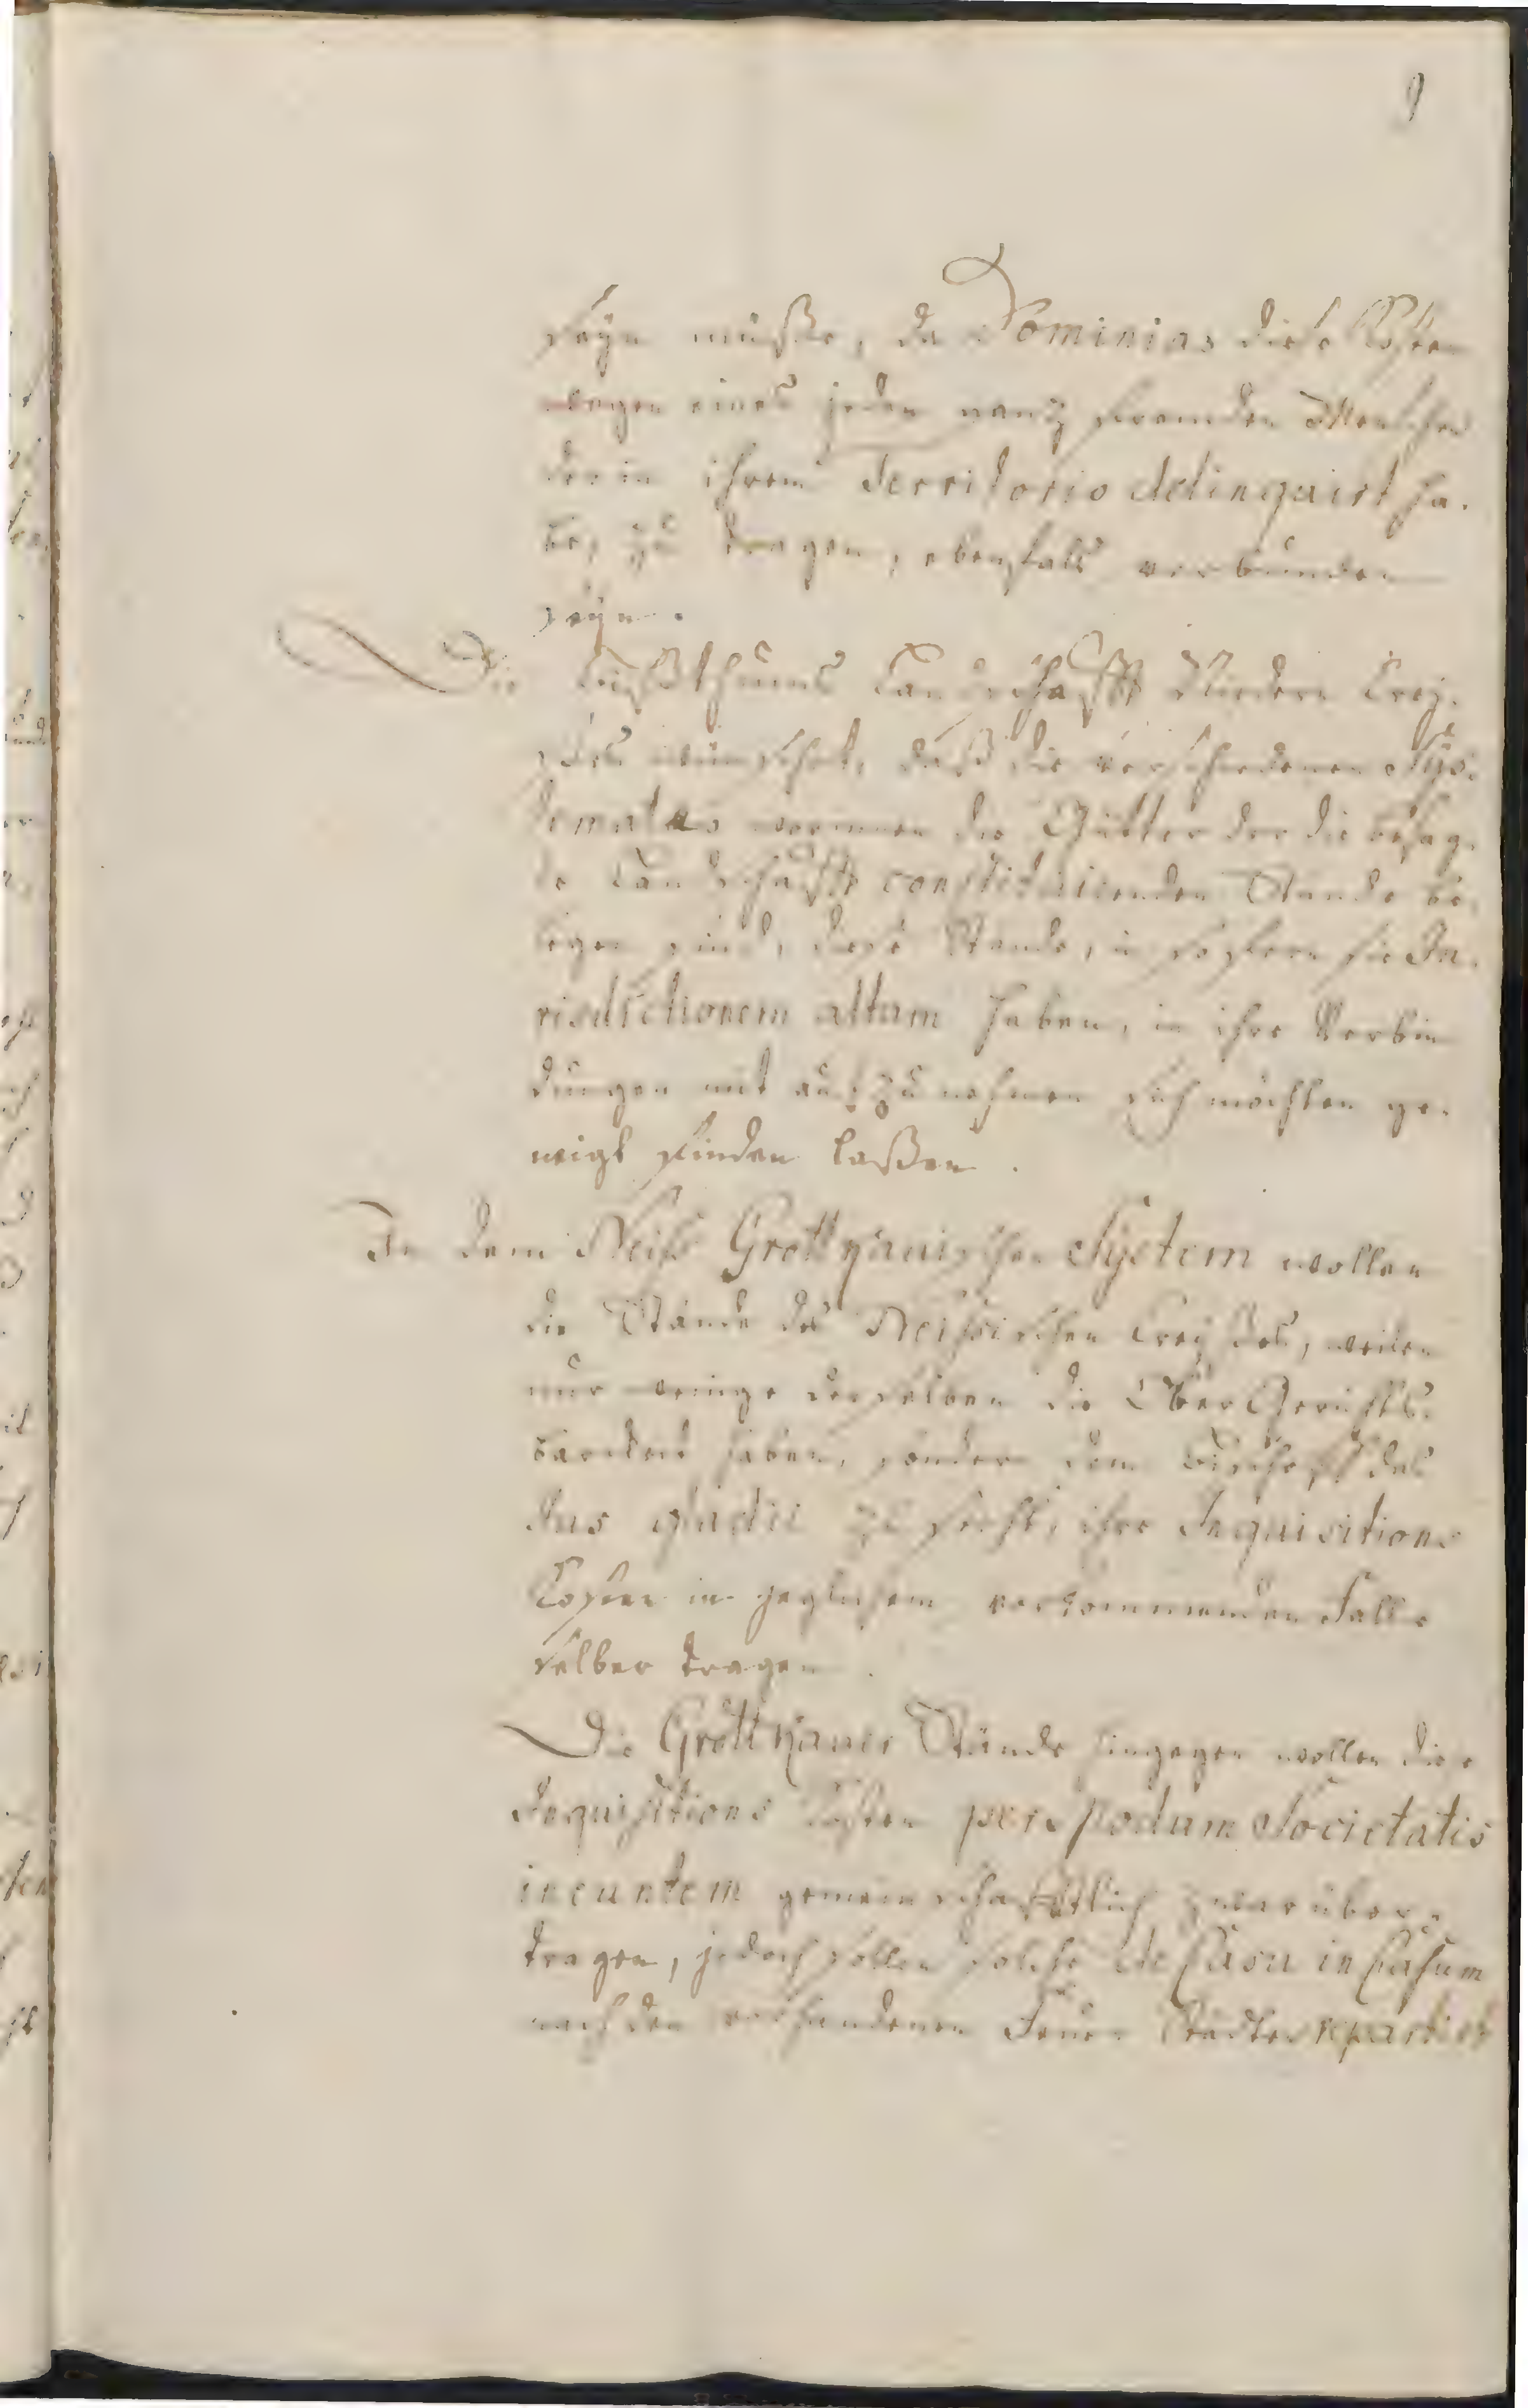 9
seyn müße, da Dominias diese Costen
wegen eines jeden gantz fremden Menschen
der in ihrem Territorio delinquirt ha-
be, zu tragen, ebenfals verbunden
seyn.
Die Bißthums Landschafft Niedern Crey-
ses wünschet, daß die verschiedenen Sys-
temata worinnen die Gütter der die besag-
te Landschafft constituirenden Stände be-
legen sind, diese Stände, in sofern sie Ju-
risdictionem altam haben, in ihre Verbin
dungen mit aufzunehmen sich möchten ge-
neigt finden laßen.
In dem Neiß Grottkauischen System wollen
die Stände des Neissischen Creyses, weilen
nur wenige derselben die Ober Gerichts-
barkeit haben, sondern dem Bischoff das
Jus gladii zu steht, ihre Inquisitions
Costen in jeglichem vorkommenden Falle
selber tragen.
Die Grottkauer Stände hingegen wollen die
Inquisitions Costen per modum Societatis
ineuntem gemeinschafftlich zwar über-
tragen, jedoch sollen solche de Casu in Casum
nach den vorhandenen Feuer Städten repartirt